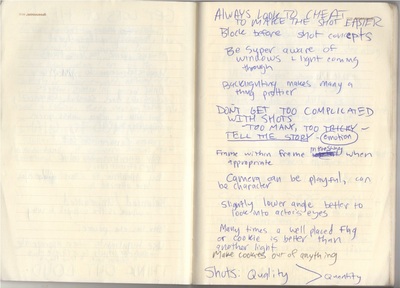 ALWAYS LOOK TO CHEAT
TO MAKE THE SHOT EASIER
Block before shot concepts
Be super aware of
windows & light coming
through
Backlighting makes many a
thing prettier
DON'T GET TOO COMPLICATED
WITH SHOTS
- TOO MANY, TOO TRICKY -
TELL THE STORY - emotion
Frame within frame when
appropriate
Camera can be playful, can
be character
Slightly lower angle better to
look into actor's eyes
Many times a well placed flag
or cookie is better than
another light
Make cookies out of anything
Shots: Quality > Quantity